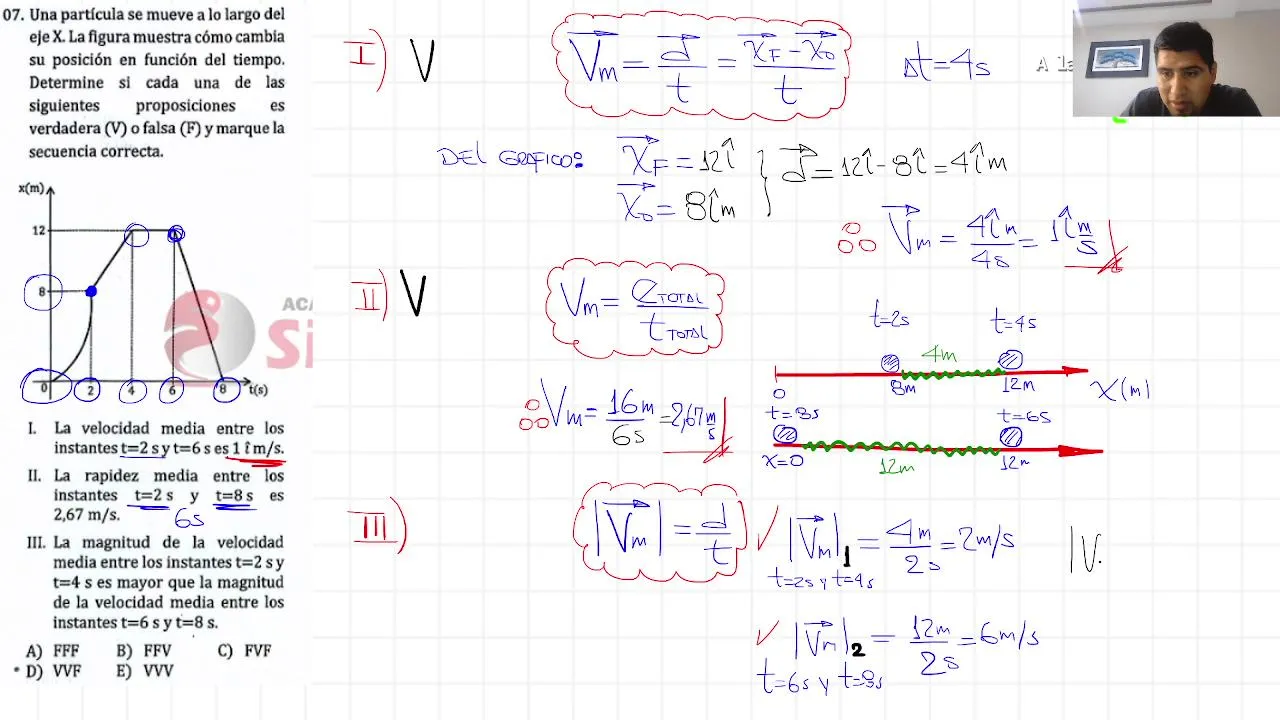 07. Una partícula se mueve a lo largo del
eje X. La figura muestra cómo cambia
su posición en función del tiempo.
Determine si cada una de las
siguientes proposiciones es
verdadera (V) o falsa (F) y marque la
secuencia correcta.
x(m)
12
8
0 2 4 6 8 t(s)
ACA
Si
I. La velocidad media entre los
instantes t=2 s y t=6 s es 1 î m/s.
II. La rapidez media entre los
instantes t=2 s y t=8 s es
2,67 m/s.
6s
III. La magnitud de la velocidad
media entre los instantes t=2 s y
t=4 s es mayor que la magnitud
de la velocidad media entre los
instantes t=6 s y t=8 s.
A) FFF B) FFV C) FVF
• D) VVF E) VVV
I) V
V⃗m = d⃗/t = (x⃗F − x⃗0)/t
Δt=4s
A la
DEL GRÁFICO: x⃗F = 12î
x⃗0 = 8îm
d⃗ = 12î − 8î = 4îm
∴ V⃗m = 4îm/4s = 1î m/s
II) V
Vm = eTOTAL/tTOTAL
t=2s t=4s
4m
0 8m 12m X(m)
∴ Vm = 16m/6s = 2,67 m/s
t=8s t=6s
x=0 12m 12m
III)
|V⃗m| = d/t
|V⃗m|1 = 4m/2s = 2m/s
t=2s y t=4s
|V.
|V⃗m|2 = 12m/2s = 6m/s
t=6s y t=8s